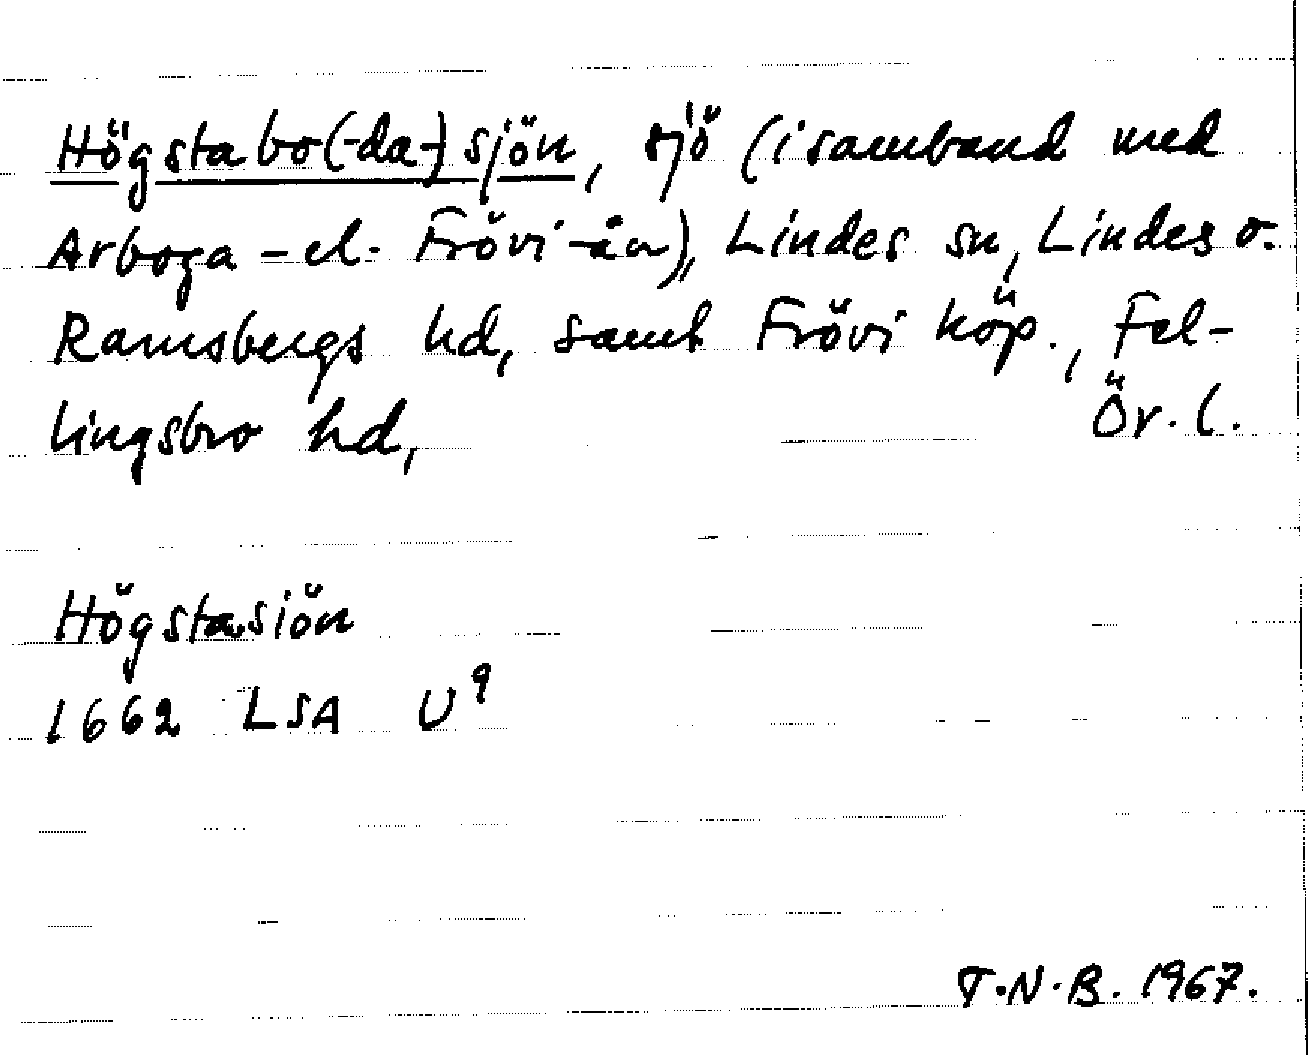 Högstabo(-da-)sjön, sjö (i samband med
Arboga- el. Frövi-ån), Lindes sn, Lindes o.
Ramsbergs hd, samt Frövi köp., Fel-
lingsbro hd, Ör. l.
Högstasiön
1662 LSA U⁹
T.N.B. 1967.